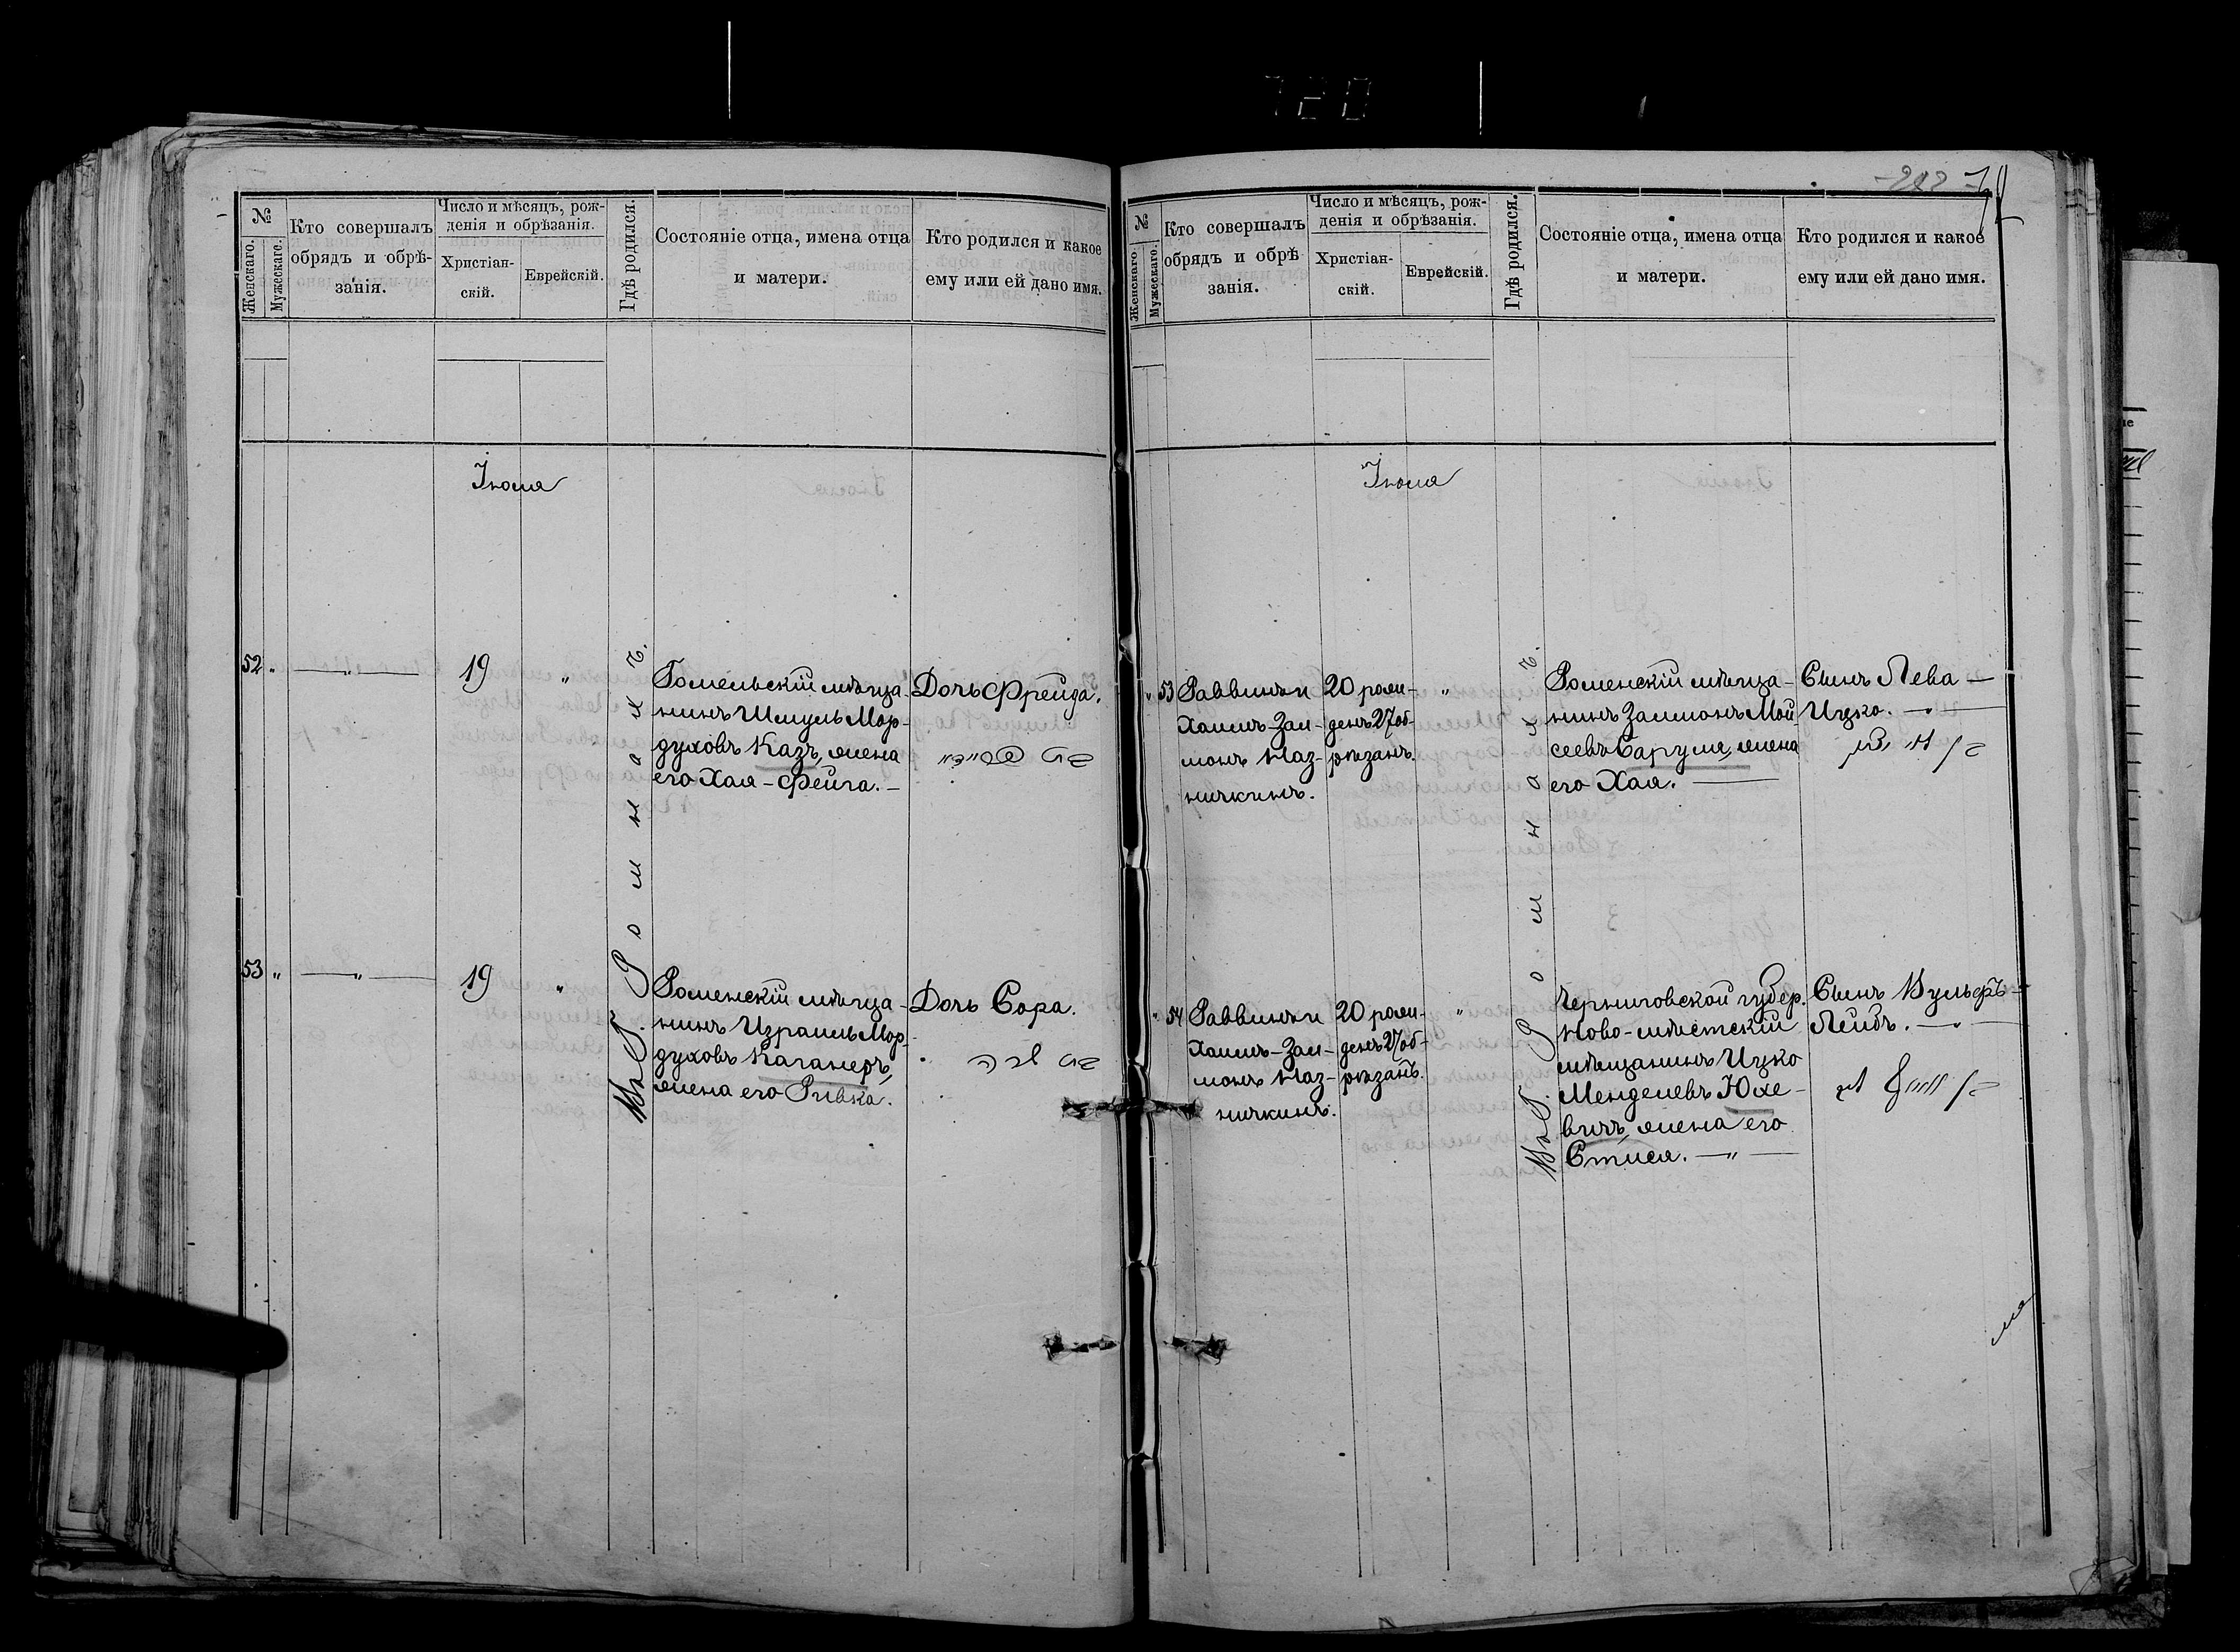 720
№
Женскаго.
Мужескаго.
Кто совершалъ
обрядъ и обрѣ-
занія.
Число и мѣсяцъ, рож-
денія и обрѣзанія.
Христіан-
скій.
Еврейскій.
Гдѣ родился.
Состояніе отца, имена отца
и матери.
Кто родился и какое
ему или ей дано имя.
Іюля
52 " — " — 19 "
Гомельскій мѣща-
нинъ Шмуль Мор-
духовъ Кацъ, жена
его Хая-Фейга. —
Дочь Фрейда.
53 " — " — 19 "
Роменскій мѣща-
нинъ Израиль Мор-
духовъ Каганеръ,
жена его Ривка.
Дочь Сора.
בת שרה
Въ Г. Ромнахъ.
№
Женскаго.
Мужескаго.
Кто совершалъ
обрядъ и обрѣ
занія.
Число и мѣсяцъ, рож-
денія и обрѣзанія.
Христіан-
скій.
Еврейскій.
Гдѣ родился.
Состояніе отца, имена отца
и матери.
Кто родился и какое
ему или ей дано имя.
Іюля
" 53 Раввинъ и
Хаимъ-Зал-
монъ Маз-
ничкинъ.
20 рож-
денъ 27 об-
рѣзанъ.
"
Роменскій мѣща-
нинъ Залмонъ Мой-
сеевъ Сарула, жена
его Хая. —
Сынъ Лева —
Ицко. — " —
" 54 Раввинъ и
Хаимъ-Зал-
монъ Маз-
ничкинъ.
20 рож-
денъ 27 об-
рѣзанъ.
"
Черниговской губер.
Ново-мѣстскій
мѣщанинъ Ицко
Менделевъ Юхе-
вичъ, жена его
Стися. — " —
Сынъ Вульфъ —
Лейбъ. — " —
Въ Г. Ромнахъ.